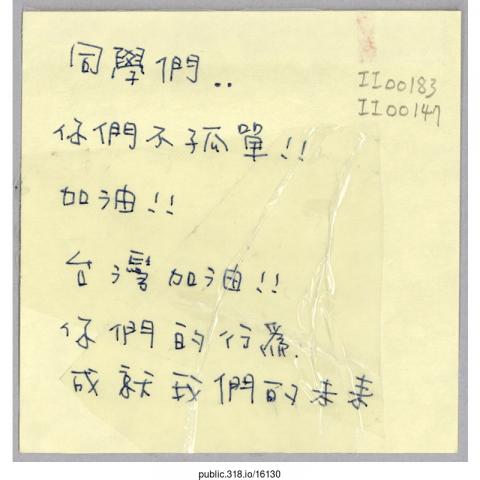 同學們..
II00183
II00147
你們不孤單!!
加油!!
台灣加油!!
你們的行為.
成就我們的未來
public.318.io/16130